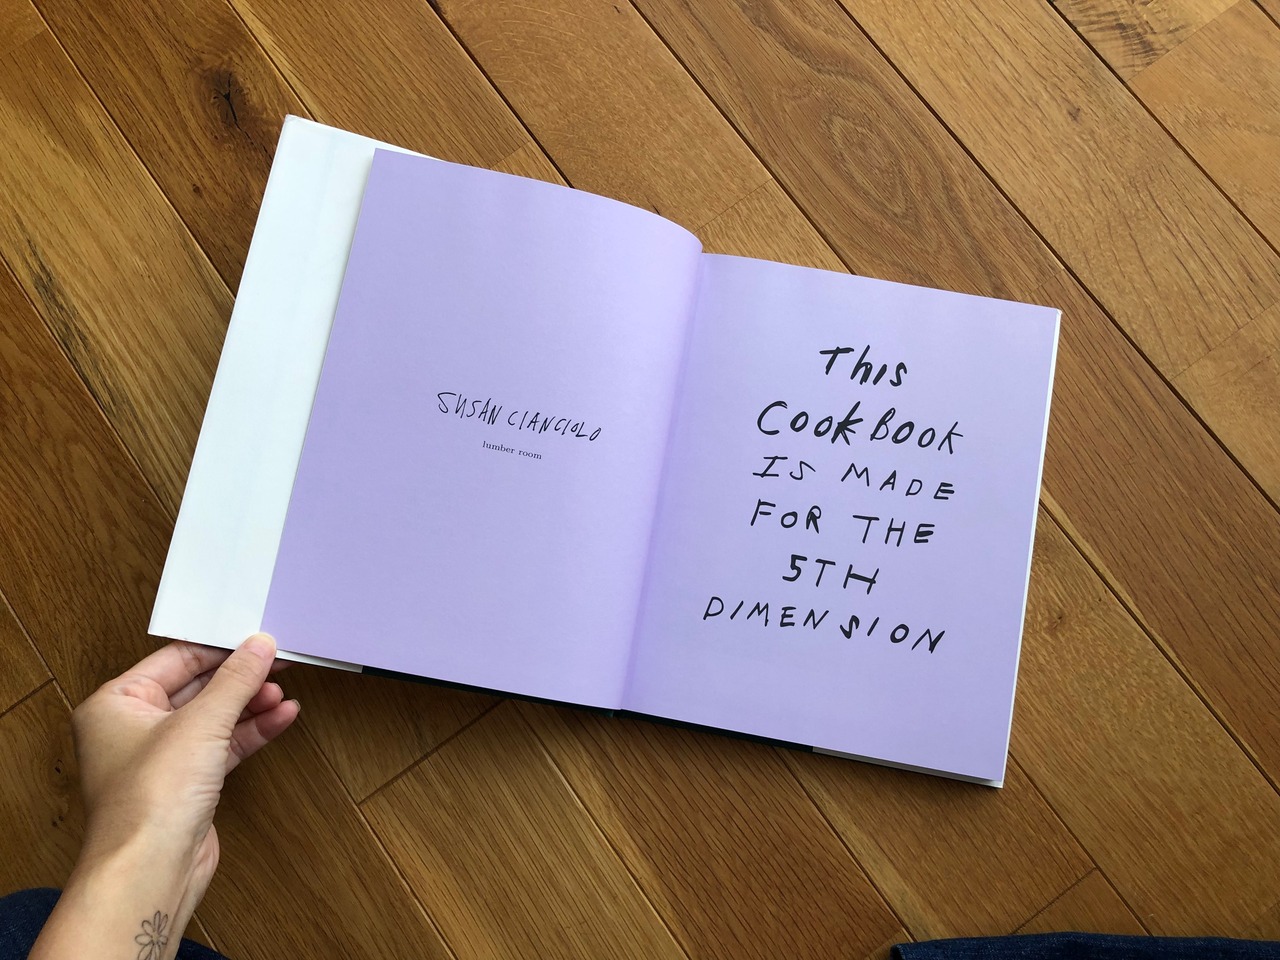 SUSAN CIANCIOLO
lumber room
This
CookBook
IS MADE
FOR THE
5TH
DIMENSION